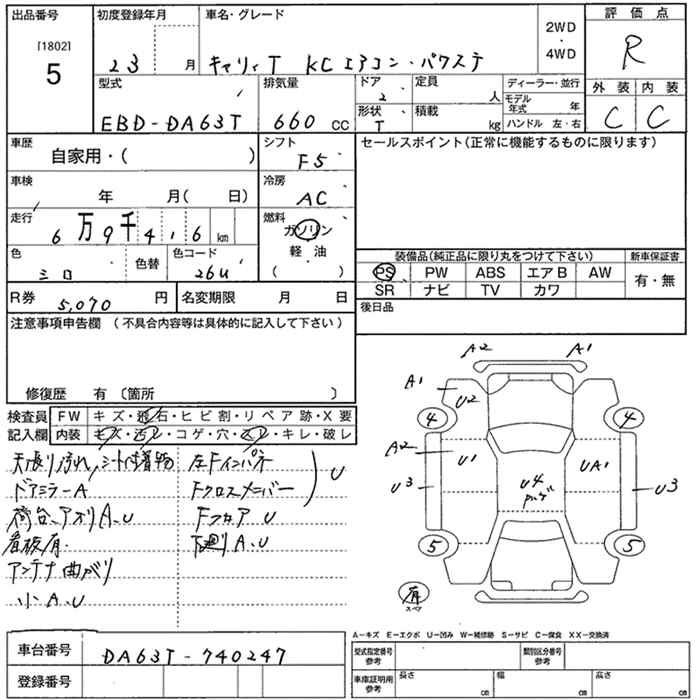 出品番号 初度登録年月 車名・グレード 2WD・4WD 評価点
[1802]
5 23 月 キャリィT KCエアコン・パワステ R
型式 排気量 ドア 2 定員 人 ディーラー・並行 外装 内装
モデル年式 年
EBD-DA63T 660 CC 形状 T 積載 kg ハンドル 左・右 C C
車歴 自家用・( ) シフト F5 セールスポイント(正常に機能するものに限ります)
車検 年 月( 日) 冷房 AC
走行 6万9千4,6km 燃料 ガソリン 軽・油 ( )
色 シロ 色替 色コード 26U
装備品(純正品に限り丸をつけて下さい) 新車保証書
PS PW ABS エアB AW 有・無
SR ナビ TV カワ
R券 5,070 円 名変期限 月 日 後日品
注意事項申告欄 (不具合内容等は具体的に記入して下さい)
修復歴 有 〔箇所 〕
検査員記入欄 FW キズ・飛石・ヒビ割・リペア跡・X要
内装 キズ・汚レ・コゲ・穴・スレ・キレ・破レ
天張り汚れ,シート付着物 左Fインパネ
ドアミラーA Fクロスメンバー U
荷台、アオリA.U Fフロア U
看板有 下廻りA.U
アンテナ曲がり
小A.U
A2 A1
A1 U2
4 4
A2 U1 U4 UA1
U3 U3
5 5
有
スペア
A-キズ E-エクボ U-凹み W-補修跡 S-サビ C-腐食 XX-交換済
車台番号 DA63T-740247 型式指定番号参考 類別区分番号参考
登録番号 車庫証明用参考 長さ cm 幅 cm 高さ cm